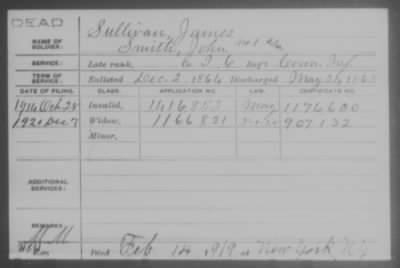 DEAD
NAME OF SOLDIER: Sullivan, James
Smith, John No 1 Alias
SERVICE: Late rank, Co. I, 6 Reg't Conn. Inf.
TERM OF SERVICE: Enlisted Dec. 2, 1864 Discharged May 26, 1865
DATE OF FILING. CLASS. APPLICATION NO. LAW. CERTIFICATE NO.
Oct 28 Invalid, 1416853 1176,600
1920 Dec 7 Widow, 1166821 907132
Minor,
ADDITIONAL SERVICES:
REMARKS:
Died Feb 14, 1919, at New York, NY